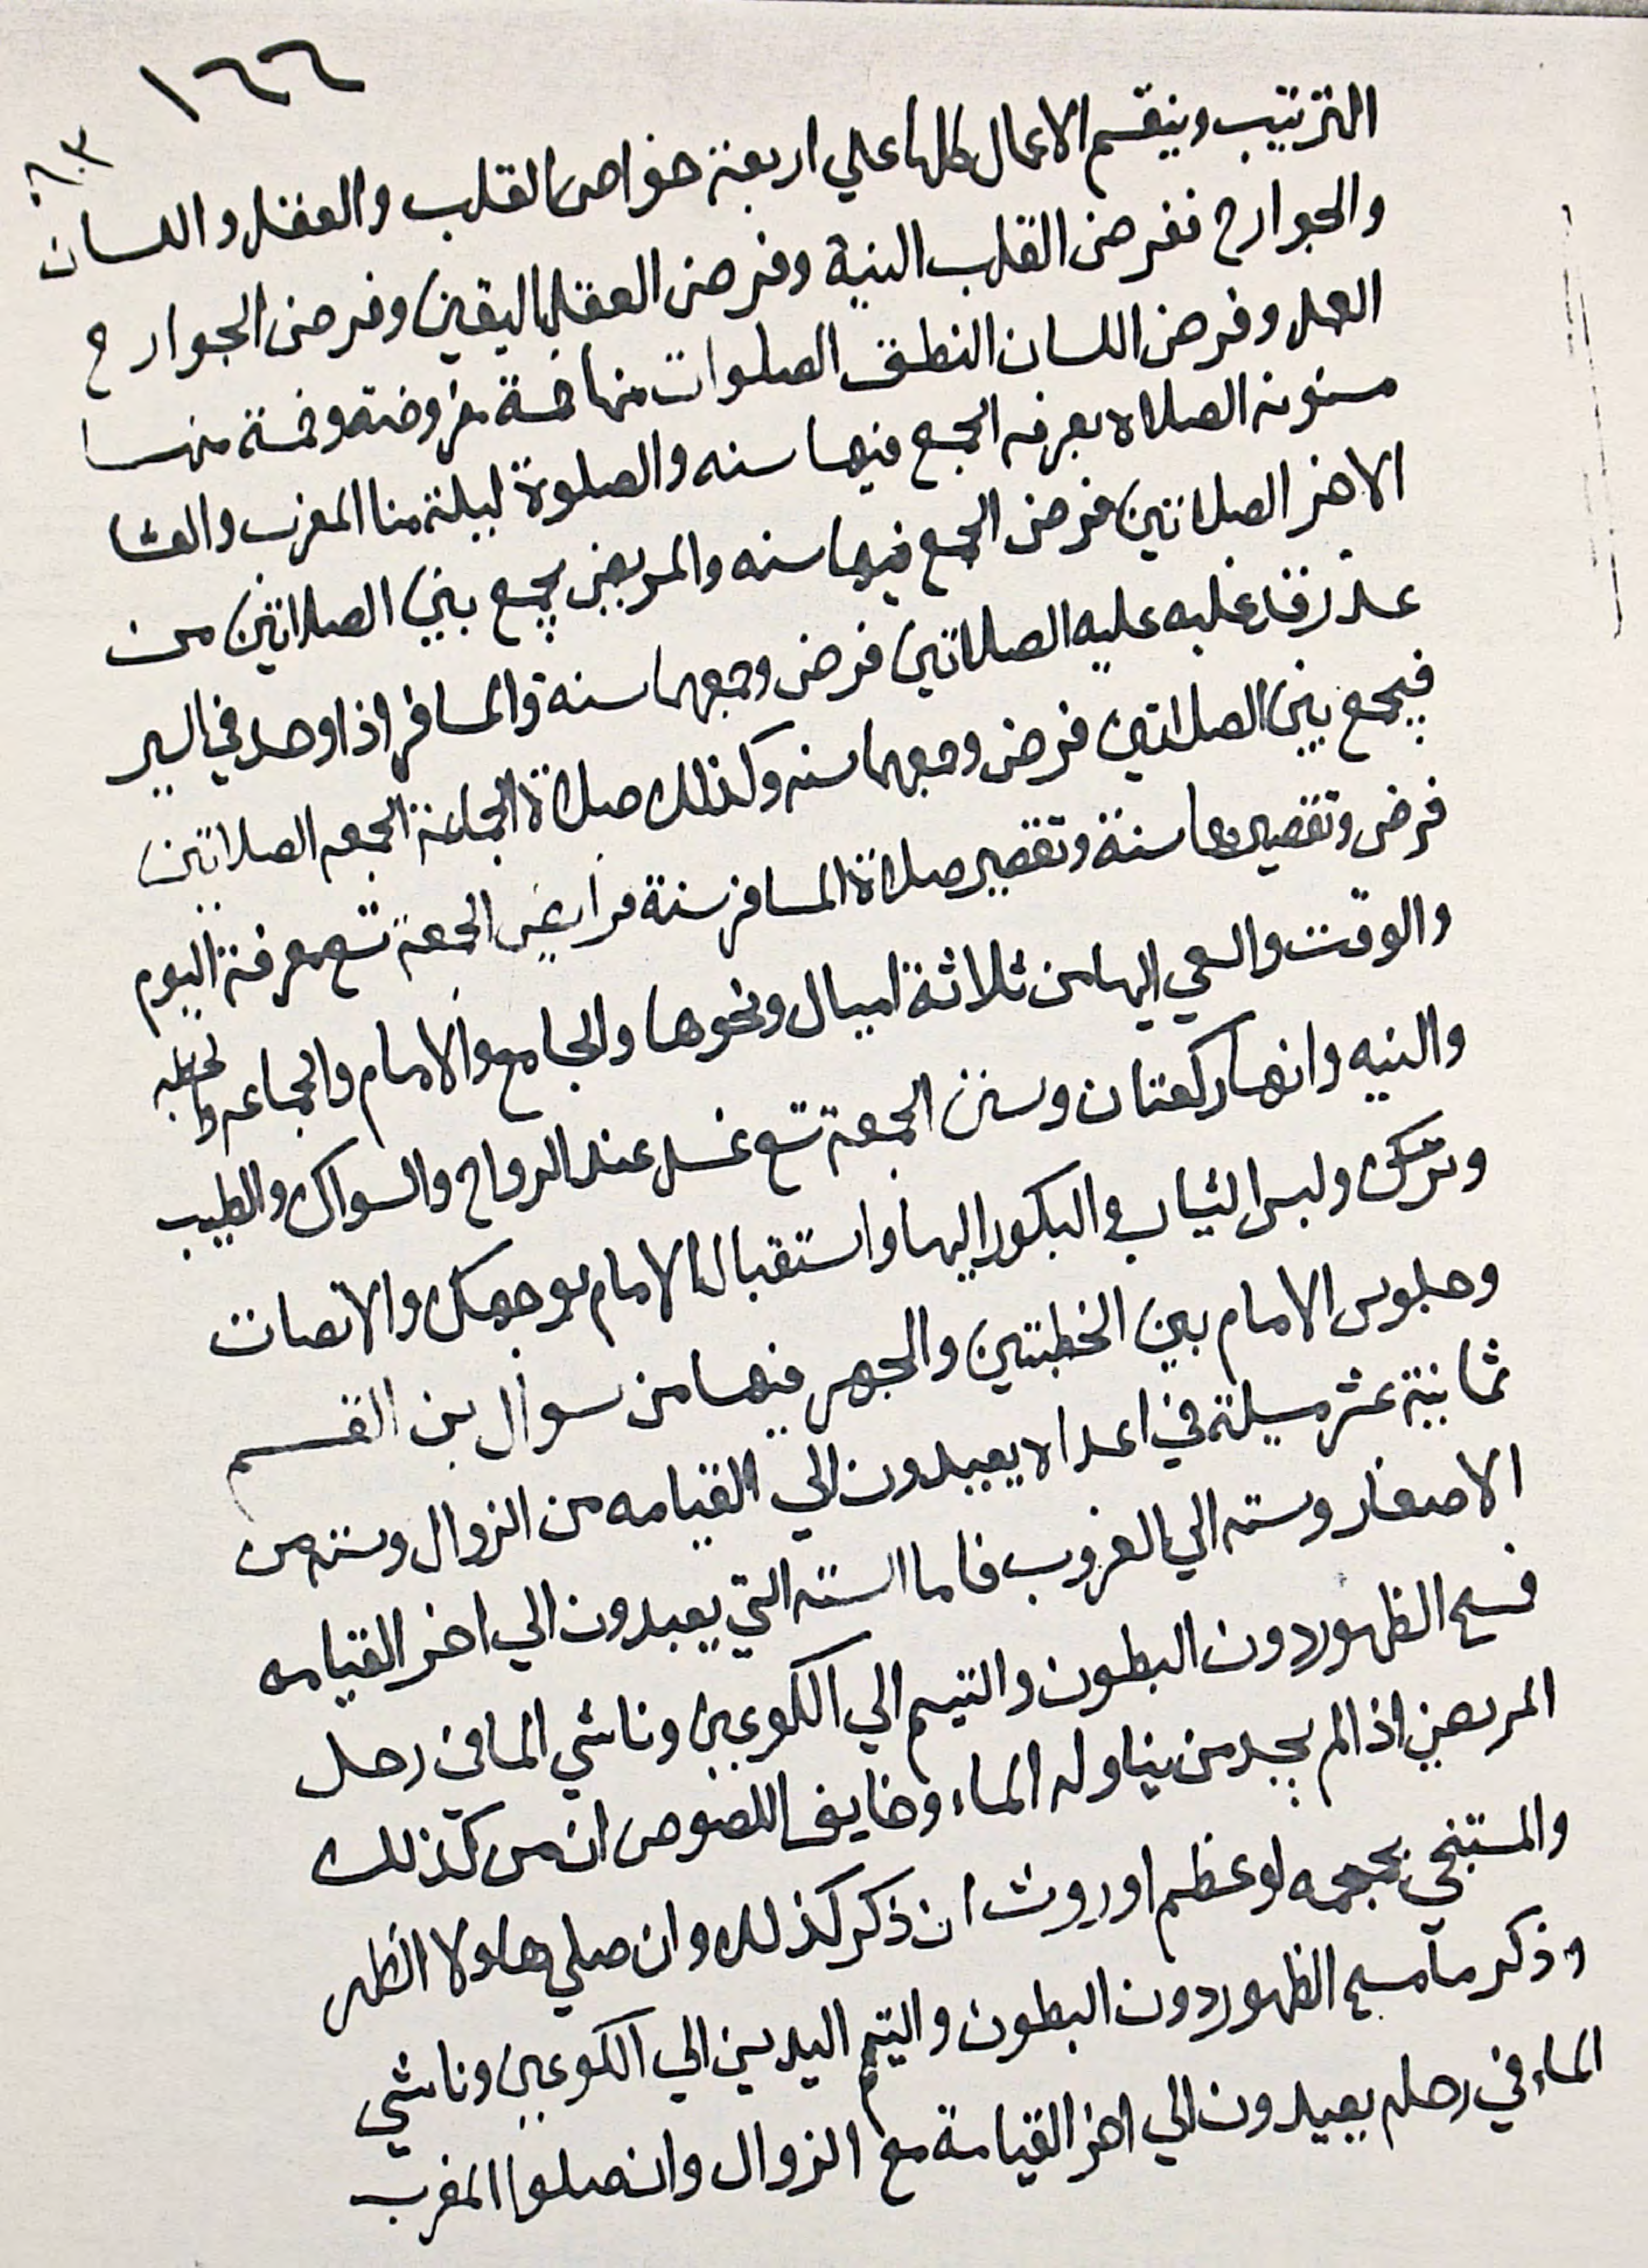 ١٦٦
٨٣
الترتيب وينقسم الاعمال كلها علي اربعة خواص القلب والعقل واللسان
والجوارح ففرض القلب النية وفرض العقل اليقين وفرض الجوارح
العمل وفرض اللسان النطق الصلوات منها خمسة مفروضة وخمسة منها
مسنونه الصلاه بعرفه الجمع فيها سنه والصلوة ليلة منا المغرب والعشا
الاخر الصلاتين فرض الجمع فيهما سنه والمريض يجمع بين الصلاتين من
عذر عليه الصلاتين فرض وجمعهما سنة والمسافر اذا وحد في السير
فيجمع بين الصلاتين فرض وجمعهما سنه وكذلك صلاة الجماعة الجمعه الصلاتين
فرض وتقصيرهما سنة وتقصير صلاة المسافر سنة فرايض الجمعة تسع معرفة اليوم
والوقت والسعي اليها من ثلاثة اميال ونحوها والجامع والامام والجماعه والخطبه
والنيه وانها ركعتان وسنن الجمعة تسع غسل عند الرواح والسواك والطيب
ولبس الثياب والبكور اليها واستقبال الامام بوجهك والانصات
وجلوس الامام بين الخطبتين والجهر فيها من سوال بن القسم
ثمانية عشر مسيلة في اعدا لا يعيدون الي القيامه من الزوال وسته من
الاصفار وسته الي الغروب فاما الستة التي يعيدون الي اخر القيامه
فسح الظهور دون البطون والتيمم الي الكوعين وناسي الما في رحل
المريض اذا لم يجد من يناوله الماء وخايف اللصوص ان من كذلك
والمستنجي بجمجمه لو عظم او روث ان ذكر كذلك وان صلي هاولا الظهر
وذكر ما مسح الظهور دون البطون والتيمم اليدين الي الكوعين وناسي
الماء في رحله يعيدون الي اخر القيامة مع الزوال وان صلوا المغرب